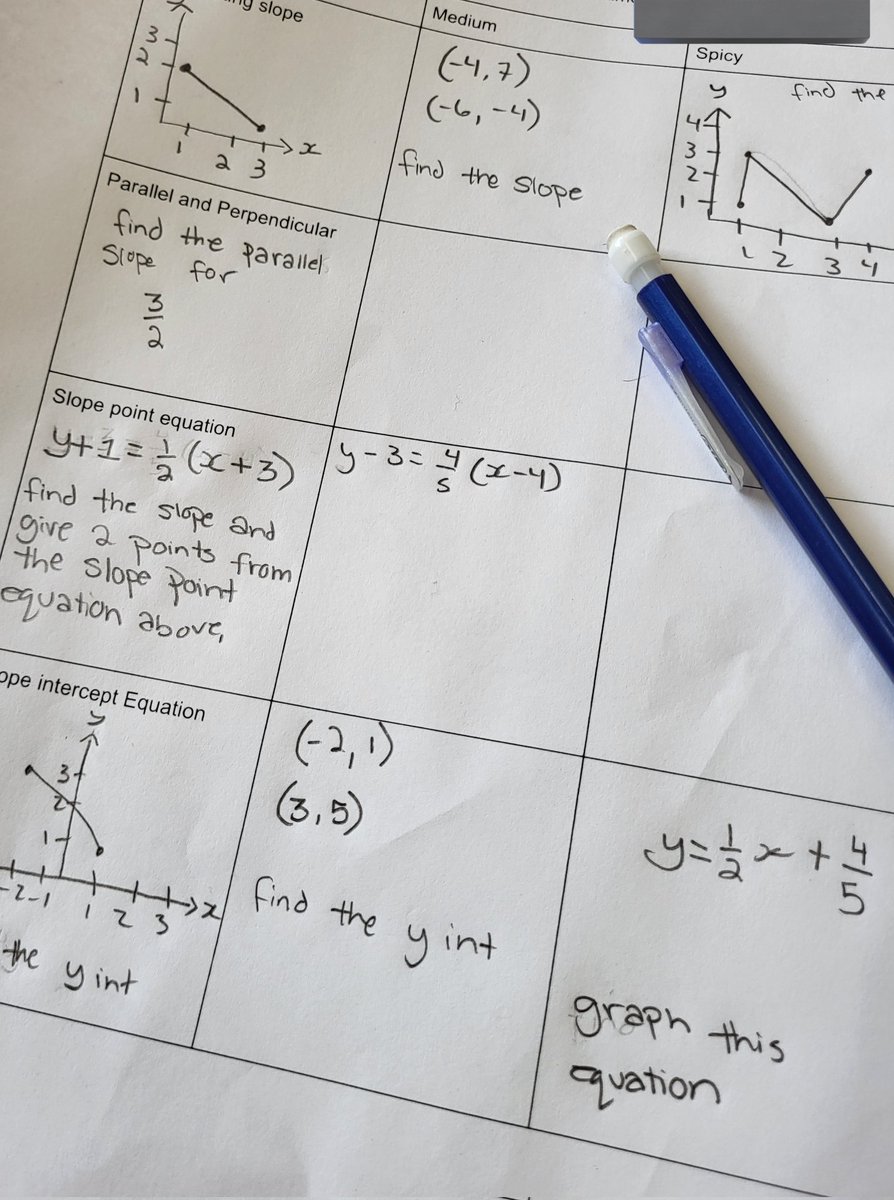 slope
Medium
Spicy
y
3
2
1
1 2 3 x
(-4, 7)
(-6, -4)
find the slope
find the
y
4
3
2
1
1 2 3 4
Parallel and Perpendicular
find the parallel
slope for
3
2
Slope point equation
y+1 = 1/2 (x+3)
find the slope and
give 2 points from
the slope point
equation above,
y - 3 = 4/5 (x-4)
ope intercept Equation
y
3
2
1
-2 -1 1 2 3 x
the y int
(-2, 1)
(3, 5)
find the y int
y = 1/2 x + 4/5
graph this
equation